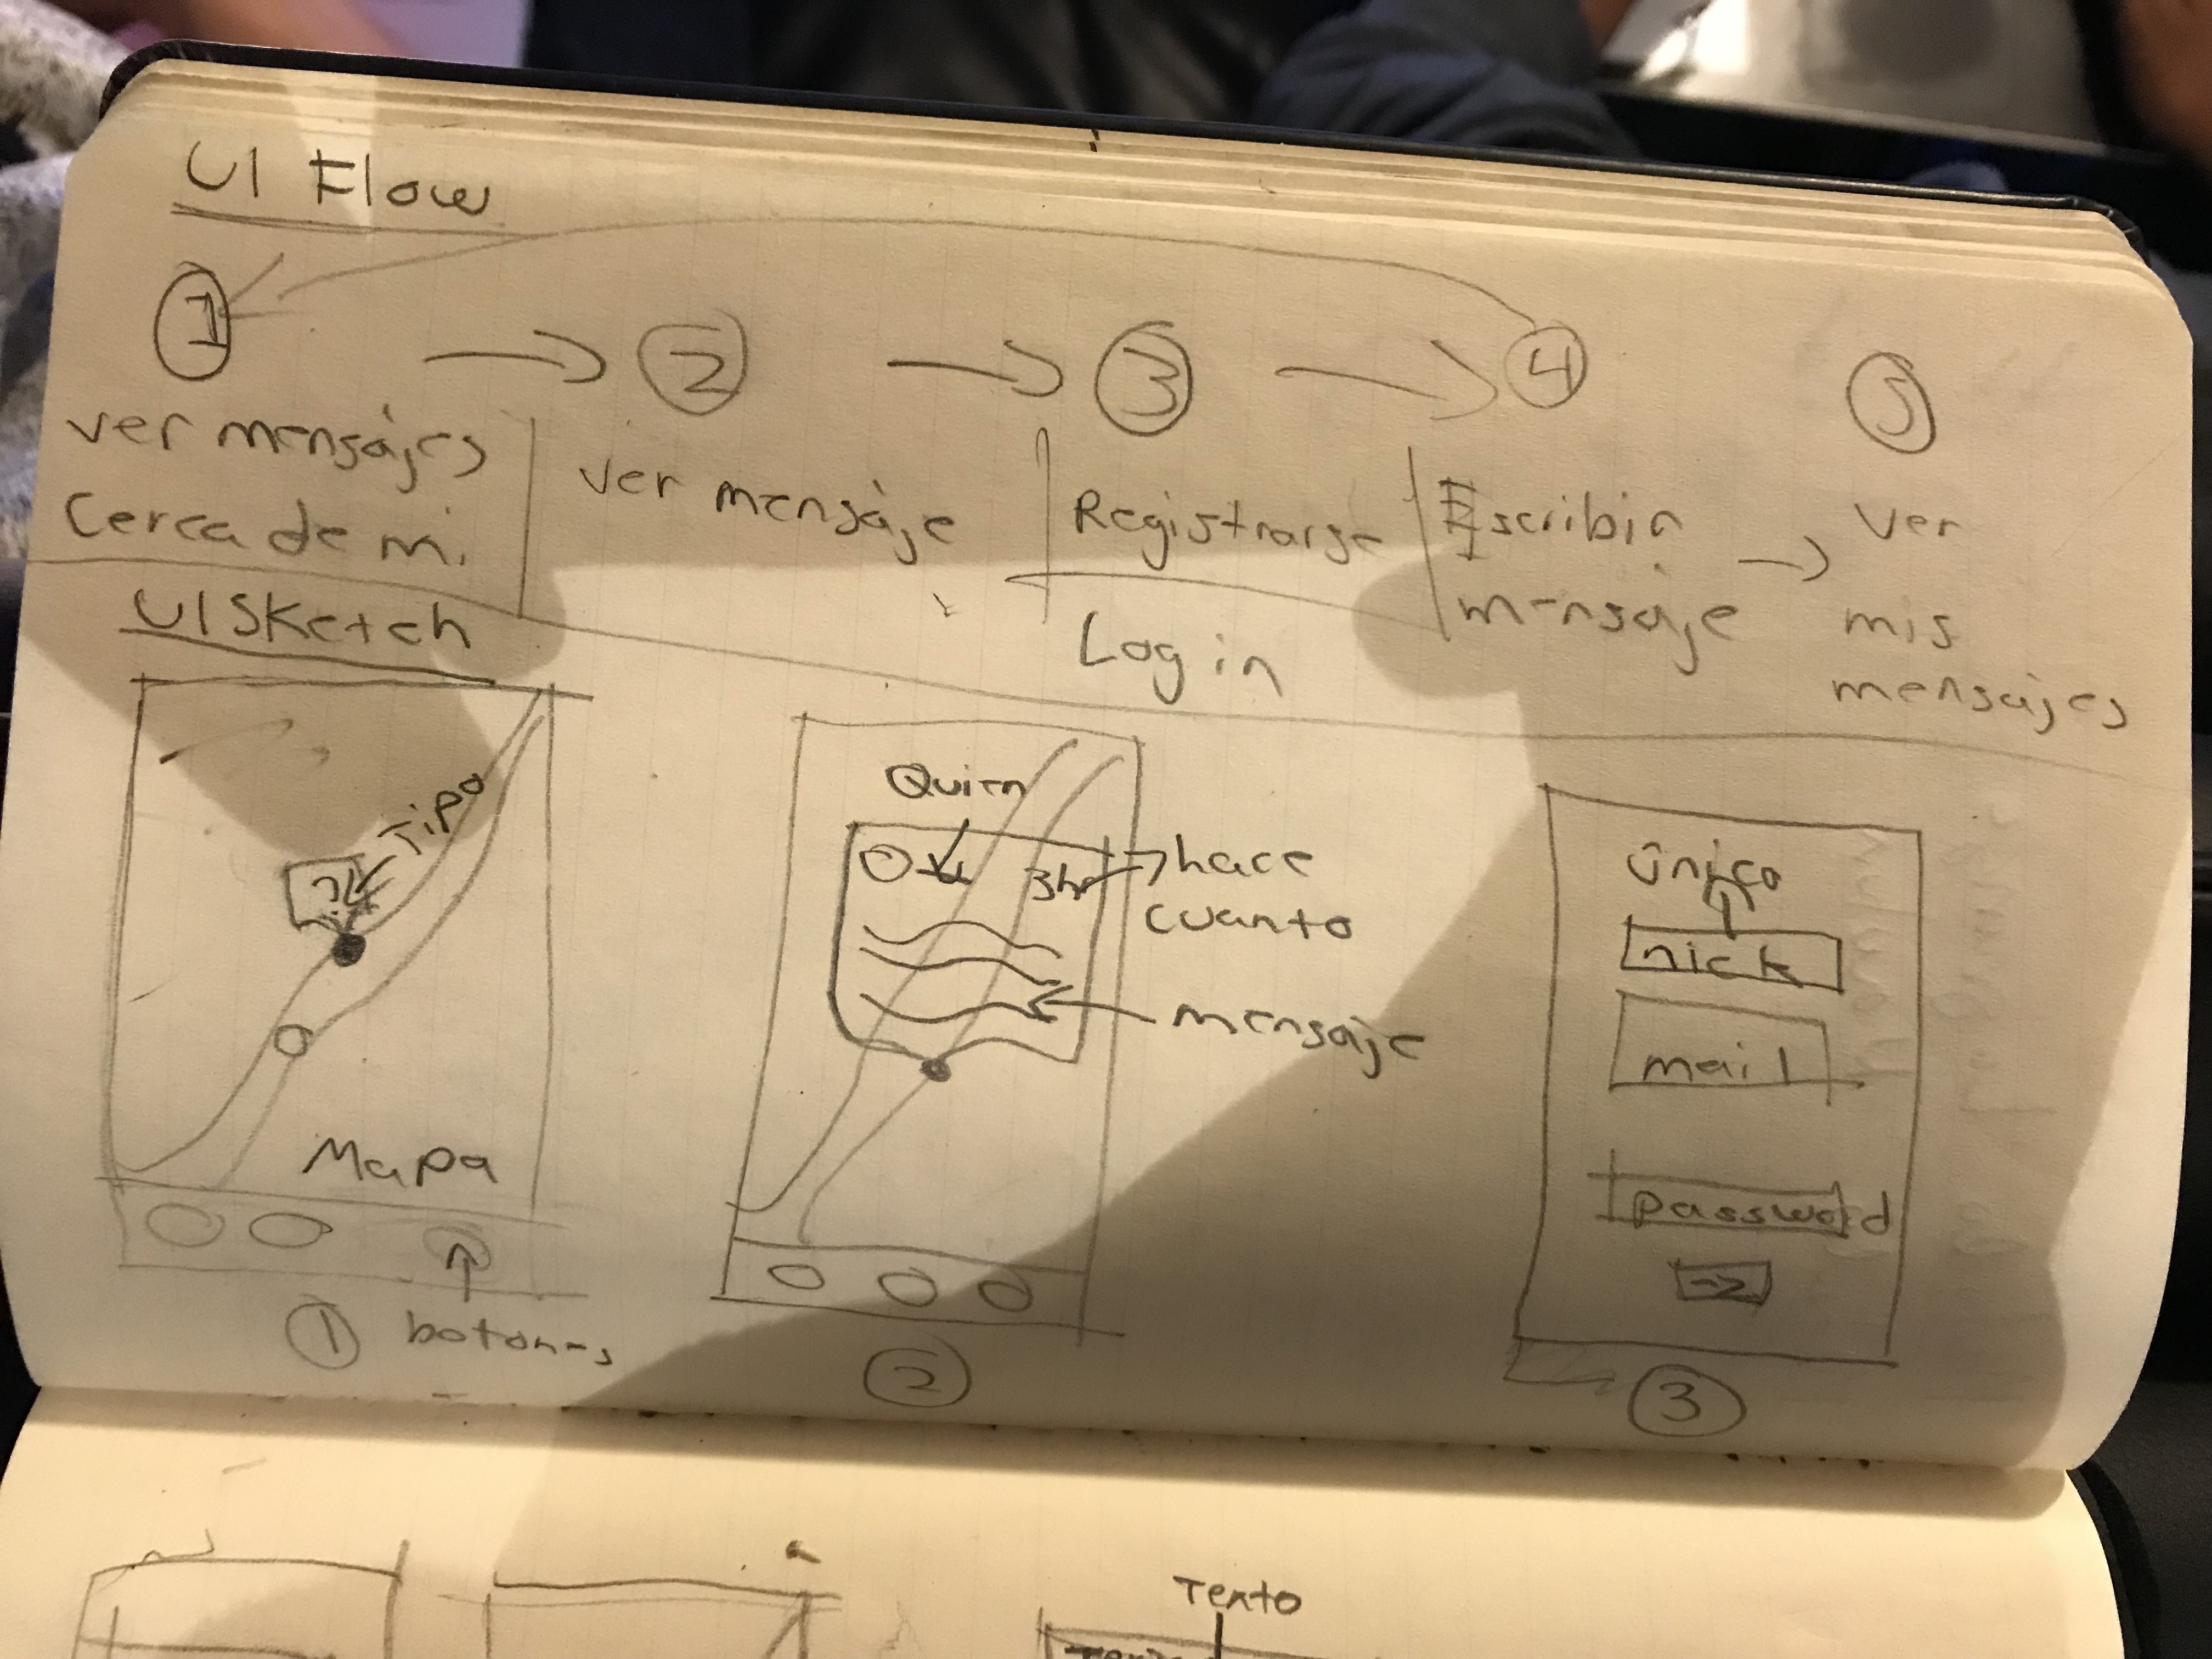 UI Flow
1 → 2 → 3 → 4 5
ver mensájes
cerca de mi
ver mensáje
Registrarse
Log in
Escribir
mensáje →
ver
mis
mensájes
UI Sketch
Tipo
?
Mapa
botones
1
Quien
3hr
hace
cuanto
mensaje
2
único
nick
mail
password
→
3
Texto